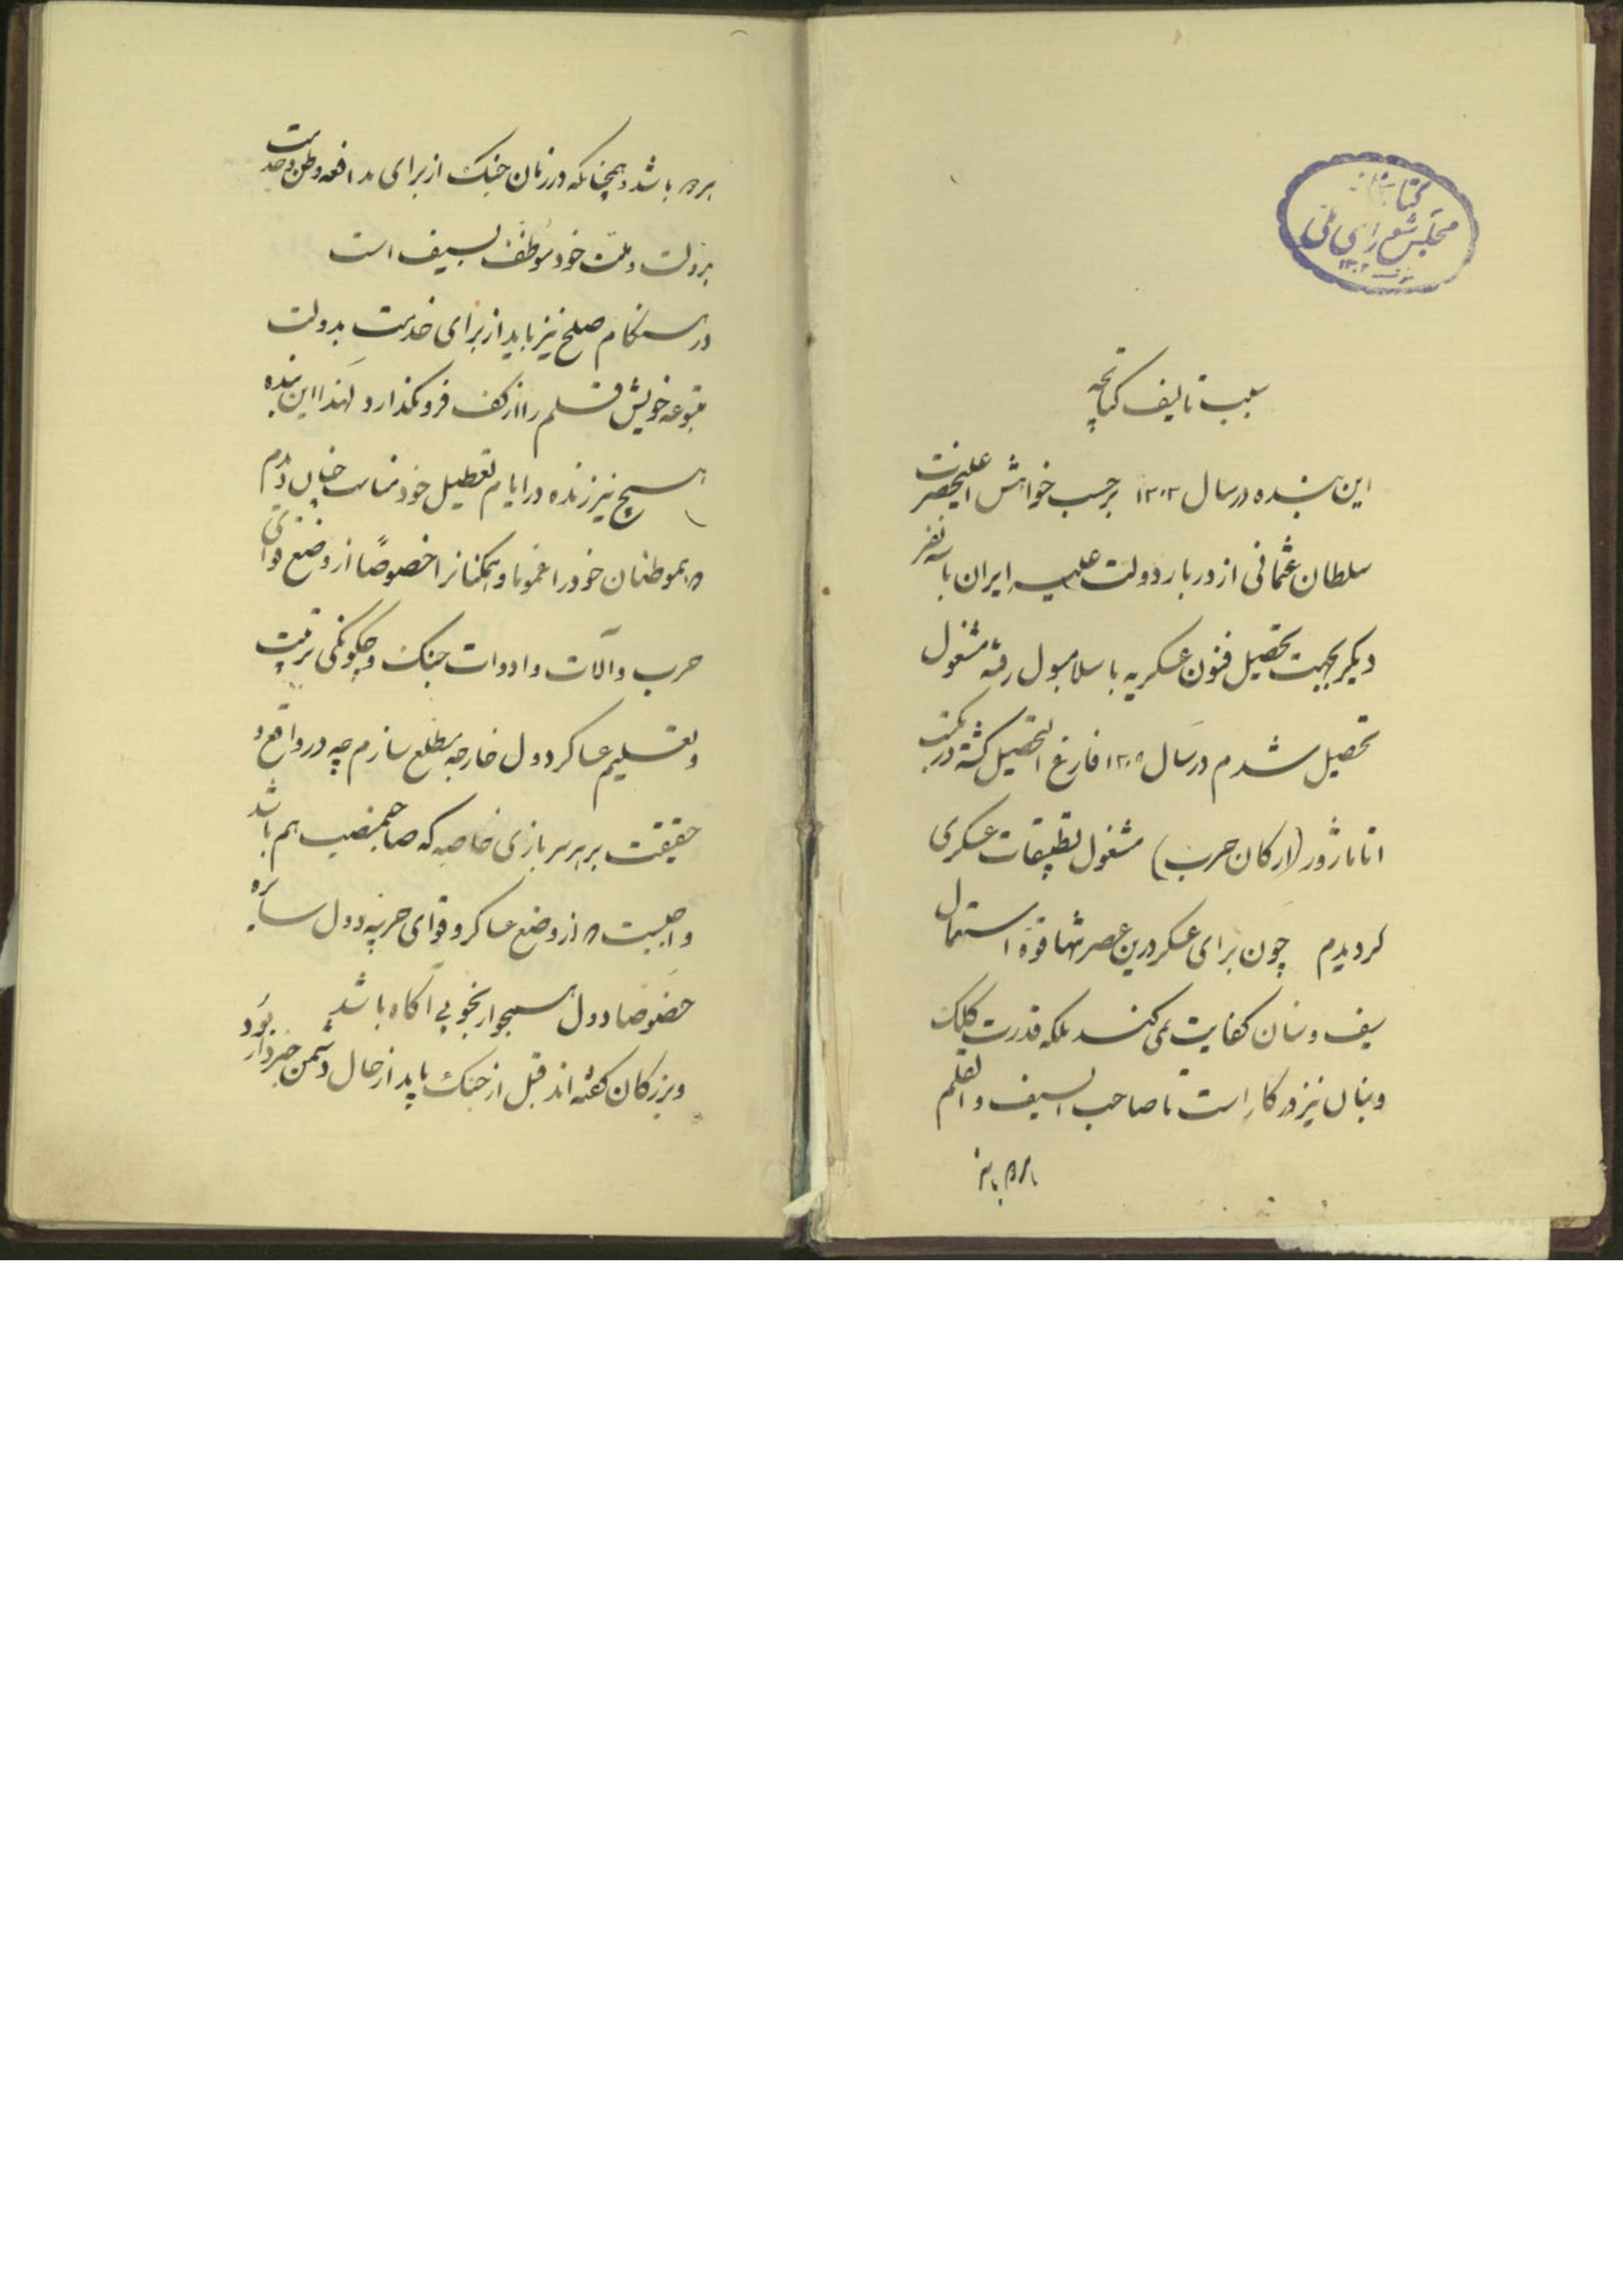 کتابخانه
مجلس شورای ملی
۱۳۰۲
سبب تالیف کتابچه
این بنده در سال ۱۳۰۳ برحسب خواهش اعلیحضرت
سلطان عثمانی از دربار دولت علیه ایران با سه نفر
دیکر بجهت تحصیل فنون عسکریه باسلامبول رفته مشغول
تحصیل شدم در سال ۱۳۰۹ فارغ التحصیل کشته در مکتب
اتاماژور (ارکان حرب) مشغول تطبیقات عسکری
کردیدم چون برای عسکر درین عصر تنها قوه استعمال
سیف و سنان کفایت نمی کند بلکه قدرت کلک
و بنان نیز در کار است تا صاحب السیف و القلم
باشد
باشد و همچنانکه در زمان جنک از برای مدافعه وطن و خدمت
بدولت و ملت خود موظف بسیف است
در هنکام صلح نیز باید از برای خدمت بدولت
متبوعه خویش قلم را از کف فرو نکذارد لهذا این بنده
هیچ نیرزنده در ایام تعطیل خود مناسب چنان دیدم
که هموطنان خود را عموما و همکنانرا خصوصًا از وضع قوای
حرب و آلات و ادوات جنک و چکونکی ترتیب
و تعلیم عساکر دول خارجه مطلع سازم چه در واقع و
حقیقت بر هر سربازی خاصه که صاحبمنصب هم باشد
واجبست که از وضع عساکر و قوای حربیه دول سایره
خصوصا دول همجوار بخوبی آکاه باشد
و بزرکان کفته اند قبل از جنک باید از حال دشمن خبردار بود